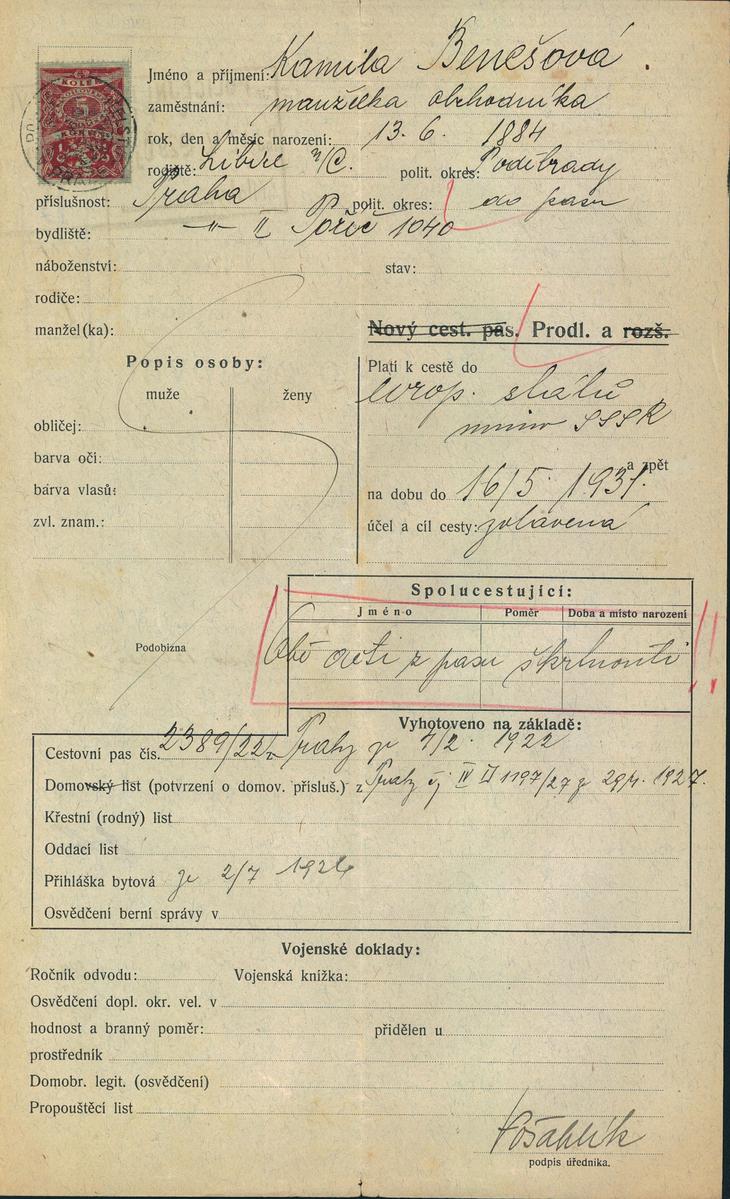 KOLEK
5
Jméno a příjmení: Kamila Benešová.
zaměstnání: manželka obchodníka
rok, den a měsíc narození: 13. 6. 1884
rodiště: Libice n/C. polit. okres: Poděbrady
příslušnost: Praha polit. okres: do pasu
bydliště: —"— II Poříč 1040
náboženství: stav:
rodiče:
manžel(ka):
Nový cest. pas. Prodl. a rozš.
Popis osoby:
muže ženy
obličej:
barva očí:
barva vlasů:
zvl. znam.:
Platí k cestě do
evrop. států
mimo SSSR
a zpět
na dobu do 16/5. 1931.
účel a cíl cesty: zotavená
Podobizna
Spolucestující:
Jméno Poměr Doba a místo narození
Obě děti z pasu škrtnouti !!
Vyhotoveno na základě:
Cestovní pas čís. 2389/22 z Prahy ze 4/2. 1922
Domovský list (potvrzení o domov. přísluš.) z Prahy čj IV 1197/27 z 29/4. 1927.
Křestní (rodný) list
Oddací list
Přihláška bytová ze 2/7 1926
Osvědčení berní správy v
Vojenské doklady:
Ročník odvodu: Vojenská knížka:
Osvědčení dopl. okr. vel. v
hodnost a branný poměr: přidělen u
prostředník
Domobr. legit. (osvědčení)
Propouštěcí list
Pošahlík
podpis úředníka.